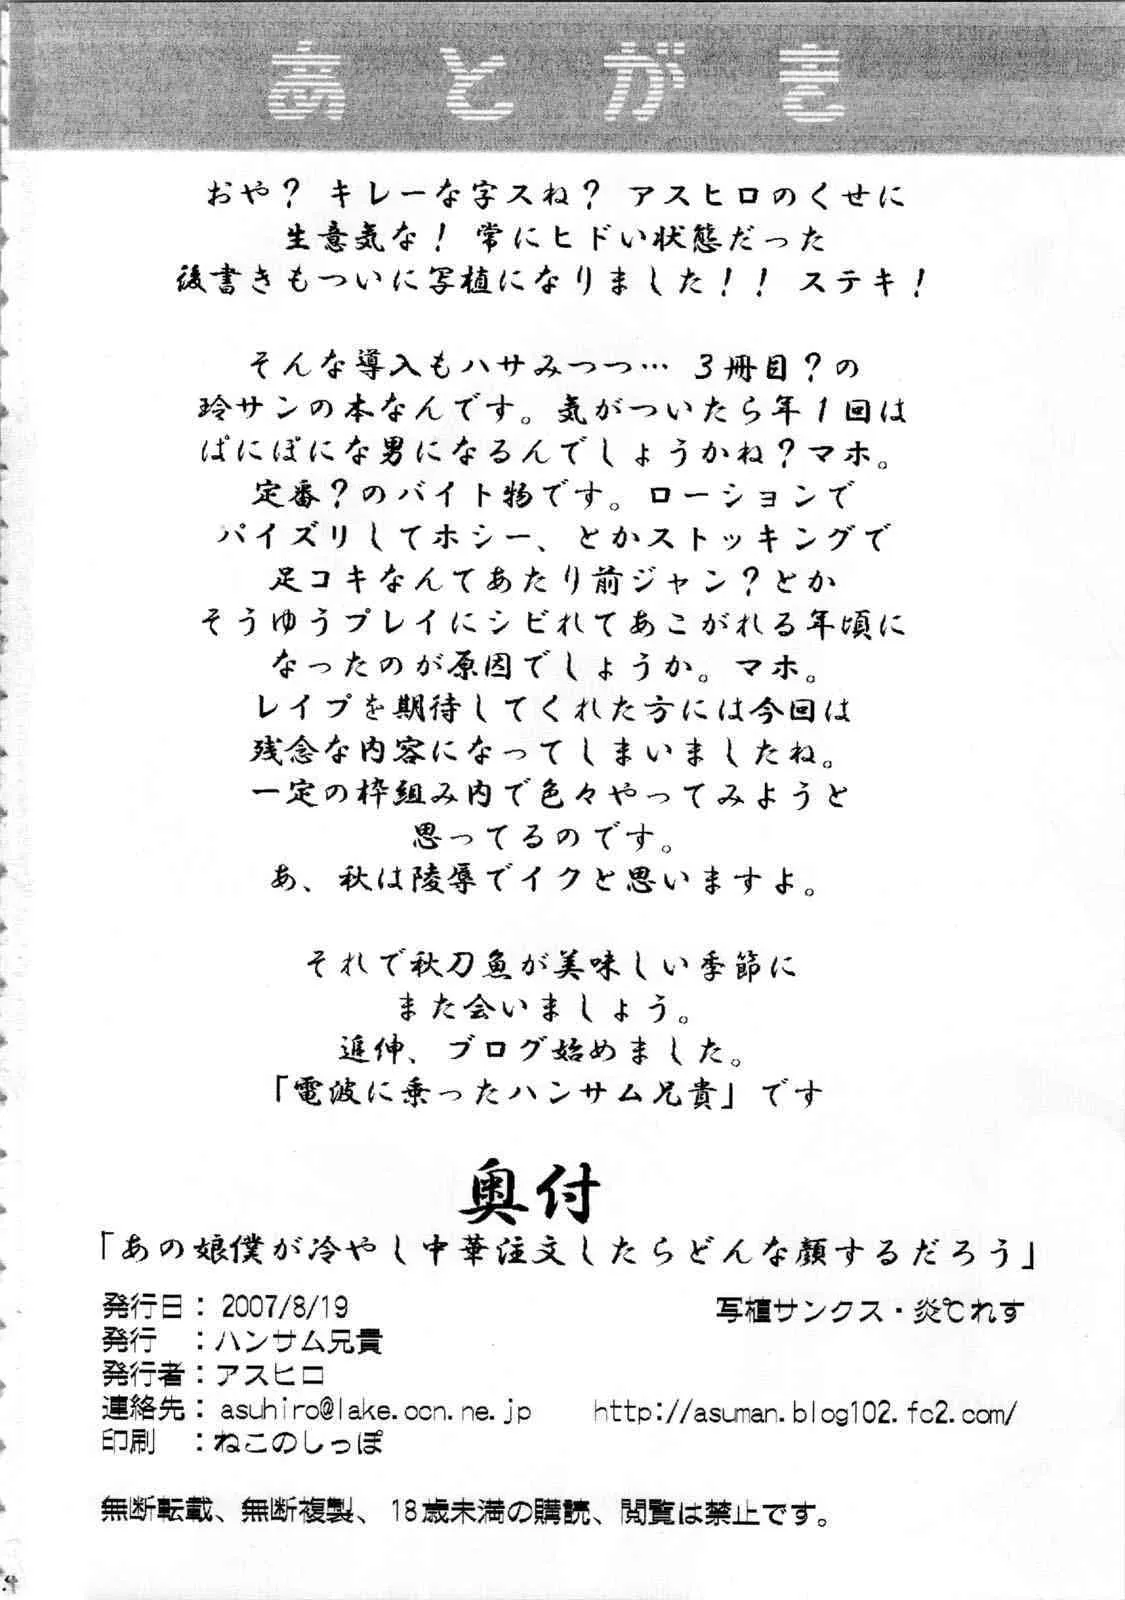 あとがき
おや？ キレーな字スね？ アスヒロのくせに
生意気な！ 常にヒドい状態だった
後書きもついに写植になりました！！ ステキ！
そんな導入もハサみつつ… ３冊目？の
玲サンの本なんです。気がついたら年１回は
ぱにぽにな男になるんでしょうかね？マホ。
定番？のバイト物です。ローションで
パイズリしてホシー、とかストッキングで
足コキなんてあたり前ジャン？とか
そうゆうプレイにシビれてあこがれる年頃に
なったのが原因でしょうか。マホ。
レイプを期待してくれた方には今回は
残念な内容になってしまいましたね。
一定の枠組み内で色々やってみようと
思ってるのです。
あ、秋は陵辱でイクと思いますよ。
それで秋刀魚が美味しい季節に
また会いましょう。
追伸、ブログ始めました。
「電波に乗ったハンサム兄貴」です
奥付
「あの娘僕が冷やし中華注文したらどんな顔するだろう」
発行日： 2007/8/19 写植サンクス・炎℃れす
発行 ：ハンサム兄貴
発行者：アスヒロ
連絡先： asuhiro@lake.ocn.ne.jp http://asuman.blog102.fc2.com/
印刷 ：ねこのしっぽ
無断転載、無断複製、18歳未満の購読、閲覧は禁止です。